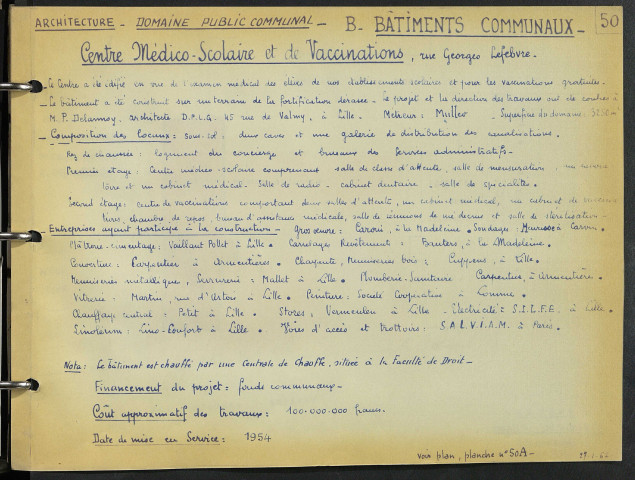 ARCHITECTURE - DOMAINE PUBLIC COMMUNAL - B- BÂTIMENTS COMMUNAUX - 50
Centre Médico-Scolaire et de Vaccinations, rue Georges Lefebvre -
Ce Centre a été édifié en vue de l'examen médical des élèves de nos établissements scolaires et pour les vaccinations gratuites.
Le bâtiment a été construit sur un terrain de la fortification dérasée. Le projet et la direction des travaux ont été confiés à
M. P. Delannoy, architecte D.P.L.G. 45 rue de Valmy, à Lille. Métreur: Superficie du domaine:
Composition des locaux: Sous-sol: deux caves et une galerie de distribution des canalisations.
Rez de chaussée: logement du concierge et bureaux des Services administratifs -
Premier étage: Centre médico-scolaire comprenant salle de classe d'attente, salle de mensuration, un
toire et un cabinet médical. Salle de radio - cabinet dentaire - salle de spécialités.
Second étage: centre de vaccinations comportant deux salles d'attente, un cabinet médical, un cabinet de
tions, chambre de repos, bureau d'assistance médicale, salle de réunions de médecins et salle de stérilisation -
Entreprises ayant participé à la construction - Gros œuvre: Caroni, à la Madeleine. Sondages:
Plâtrerie-cimentage: Vaillant Pollet à Lille. Carrelages Revêtements: à la Madeleine.
Couverture: Carpentier à Armentières. Charpente, Menuiseries bois: Cuppens, à Lille.
Menuiseries métallique, Serrurerie: Mallet à Lille. Plomberie-Sanitaire Carpentier, à Armentières.
Vitrerie: Martin, rue d'Artois à Lille. Peinture: Société Coopérative à Comines.
Chauffage central: Petit à Lille. Stores: Vermeulen à Lille - Electricité: S.I.L.F.E. à Lille.
Linoléum: Lino-Confort à Lille. Voies d'accès et trottoirs: S.A.L.V.I.A.M. à Paris.
Nota: Le bâtiment est chauffé par une Centrale de Chauffe, située à la Faculté de Droit -
Financement du projet: fonds communaux -
Coût approximatif des travaux: 100.000.000 francs.
Date de mise en Service: 1954
voir plan, planche n° 50A -